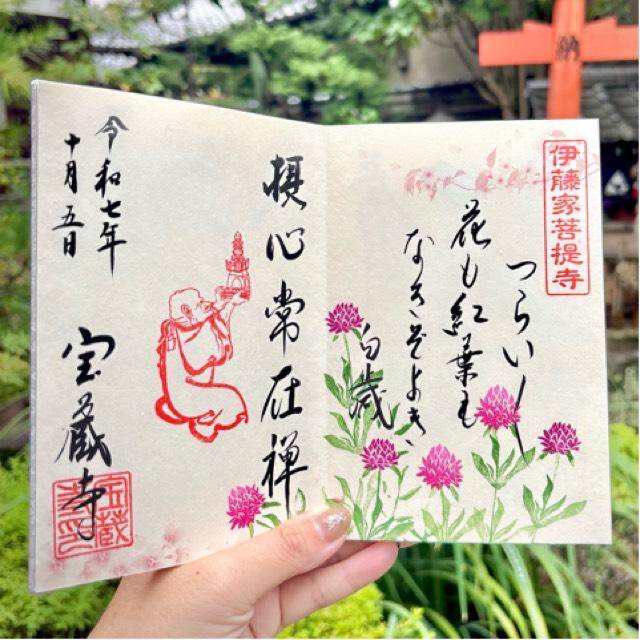 納
伊藤家菩提寺
つらい
花も紅葉も
なきぞよき
白歳
摂心常在禅
令和七年
十月五日
宝蔵寺